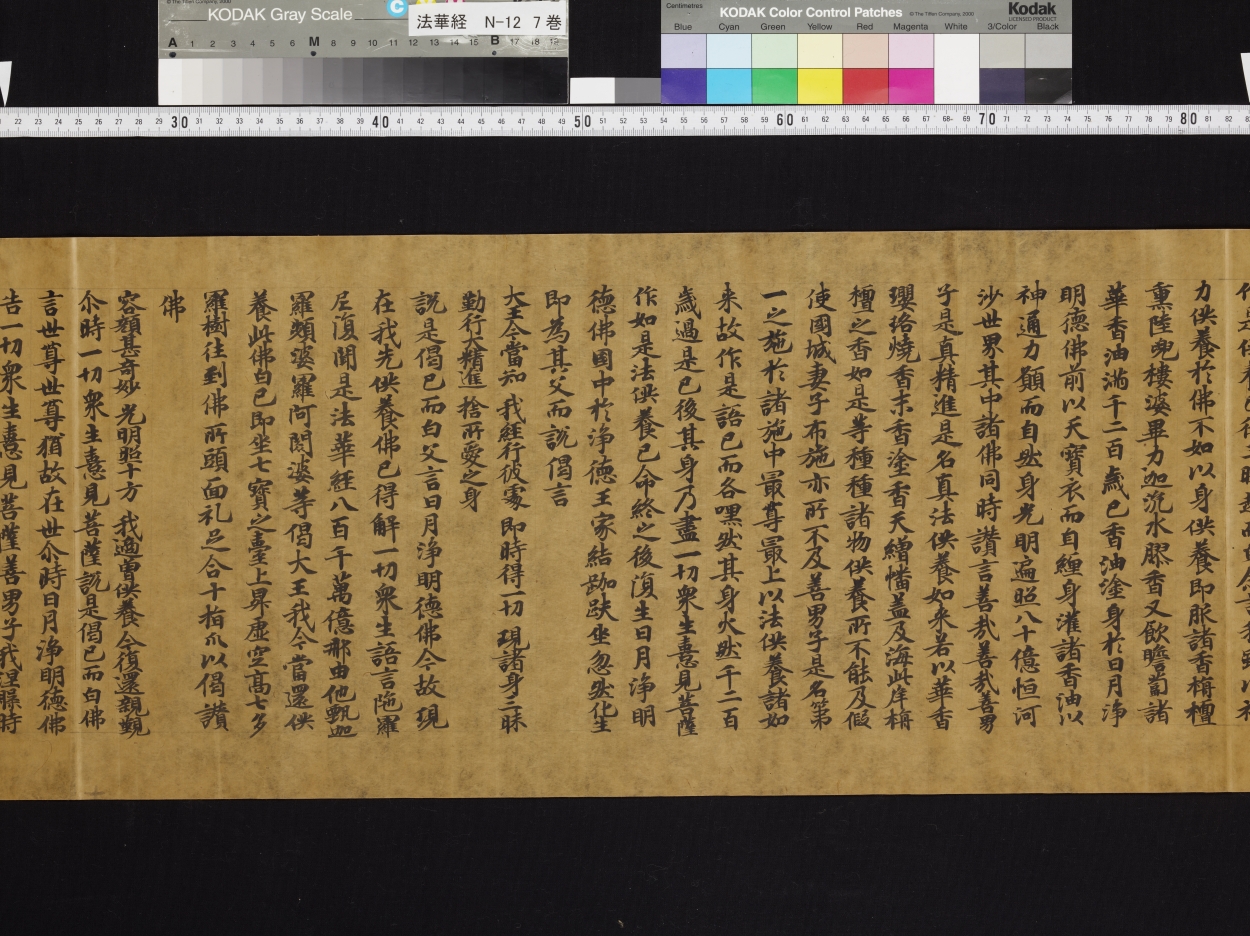 © The Tiffen Company, 2000
KODAK Gray Scale
C
法華経 N-12 7巻
A 1 2 3 4 5 6 M 8 9 10 11 12 13 14 15 B 17 18 19
Centimetres
KODAK Color Control Patches
© The Tiffen Company, 2000
Kodak
LICENSED PRODUCT
Blue Cyan Green Yellow Red Magenta White 3/Color Black
22 23 24 25 26 27 28 29 30 31 32 33 34 35 36 37 38 39 40 41 42 43 44 45 46 47 48 49 50 51 52 53 54 55 56 57 58 59 60 61 62 63 64 65 66 67 68 69 70 71 72 73 74 75 76 77 78 79 80 81 82
力供養於佛不如以身供養即服諸香栴檀
熏陸兜樓婆畢力迦沉水膠香又飲瞻蔔諸
華香油滿千二百歲已香油塗身於日月淨
明德佛前以天寶衣而自纏身灌諸香油以
神通力願而自然身光明遍照八十億恒河
沙世界其中諸佛同時讚言善哉善哉善男
子是真精進是名真法供養如來若以華香
瓔珞燒香末香塗香天繒幡蓋及海此岸栴
檀之香如是等種種諸物供養所不能及假
使國城妻子布施亦所不及善男子是名第
一之施於諸施中最尊最上以法供養諸如
来故作是語已而各嘿然其身火然千二百
歲過是已後其身乃盡一切衆生憙見菩薩
作如是法供養已命終之後復生日月淨明
德佛國中於淨德王家結跏趺坐忽然化生
即為其父而說偈言
大王今當知 我經行彼處 即時得一切 現諸身三昧
勤行大精進 捨所愛之身
說是偈已而白父言日月淨明德佛今故現
在我先供養佛已得解一切衆生語言陁羅
尼復聞是法華經八百千萬億那由他甄迦
羅頻婆羅阿閦婆等偈大王我今當還供
養此佛白已即坐七寶之臺上昇虛空高七多
羅樹往到佛所頭面礼足合十指爪以偈讚
佛
容顏甚奇妙 光明照十方 我適曾供養 今復還親覲
尒時一切衆生憙見菩薩說是偈已而白佛
言世尊世尊猶故在世尒時日月淨明德佛
告一切衆生憙見菩薩善男子我涅槃時